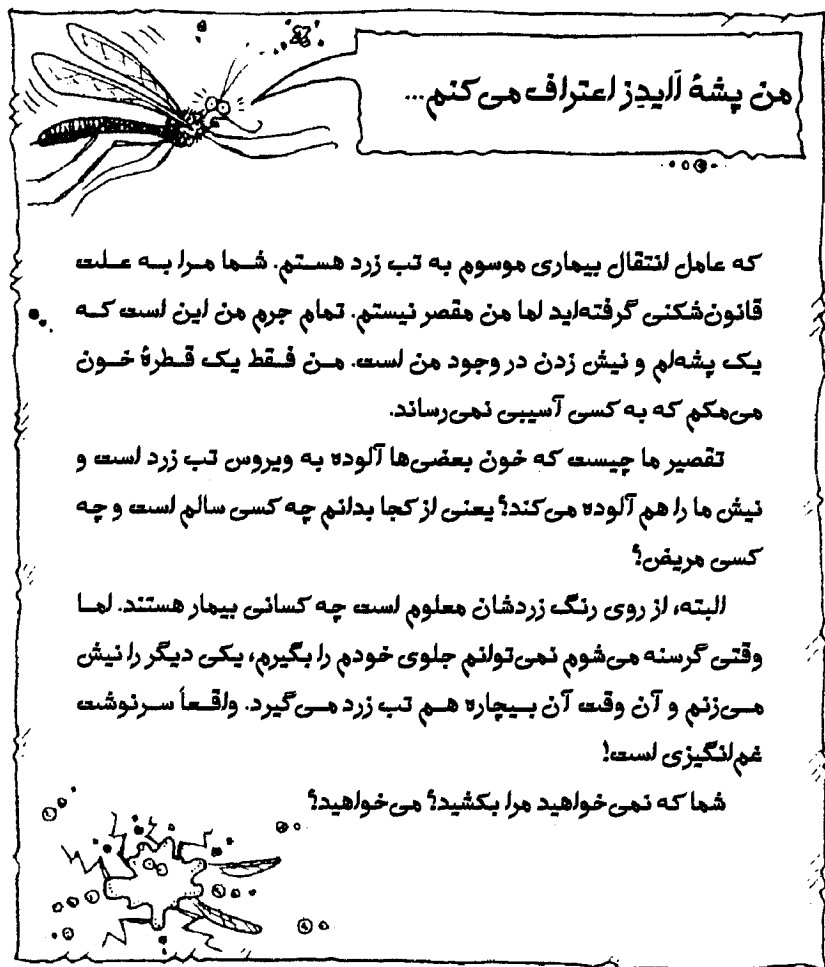 من پشهٔ آایدِز اعتراف می‌کنم...
که عامل انتقال بیماری موسوم به تب زرد هستم. شما مرا به علت
قانون‌شکنی گرفته‌اید اما من مقصر نیستم. تمام جرم من این است که
یک پشه‌ام و نیش زدن در وجود من است. من فقط یک قطرهٔ خون
می‌مکم که به کسی آسیبی نمی‌رساند.
تقصیر ما چیست که خون بعضی‌ها آلوده به ویروس تب زرد است و
نیش ما را هم آلوده می‌کند؟ یعنی از کجا بدانم چه کسی سالم است و چه
کسی مریض؟
البته، از روی رنگ زردشان معلوم است چه کسانی بیمار هستند. اما
وقتی گرسنه می‌شوم نمی‌توانم جلوی خودم را بگیرم، یکی دیگر را نیش
می‌زنم و آن وقت آن بیچاره هم تب زرد می‌گیرد. واقعاً سرنوشت
غم‌انگیزی است!
شما که نمی‌خواهید مرا بکشید؟ می‌خواهید؟